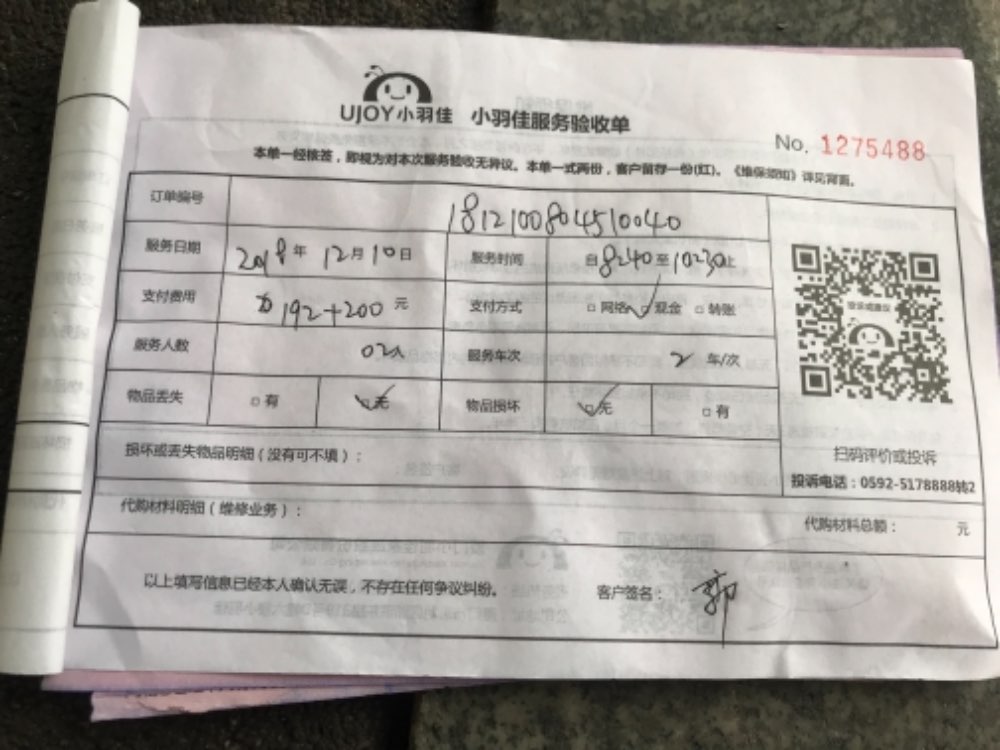 UJOY小羽佳 小羽佳服务验收单
No. 1275488
本单一经核签，即视为对本次服务验收无异议。本单一式两份，客户留存一份(红)。《维保须知》详见背面。
订单编号 181210080451 0040
服务日期 2018年 12月10日 服务时间 自8:40至10:30止
支付费用 192+200 元 支付方式 □网络 ✓现金 □转账
服务人数 02人 服务车次 2 车/次
物品丢失 □有 ✓无 物品损坏 ✓无 □有
损坏或丢失物品明细（没有可不填）：
扫码评价或投诉
投诉电话：0592-5178888转2
代购材料明细（维修业务）：
代购材料总额： 元
以上填写信息已经本人确认无误，不存在任何争议纠纷。 客户签名：郭